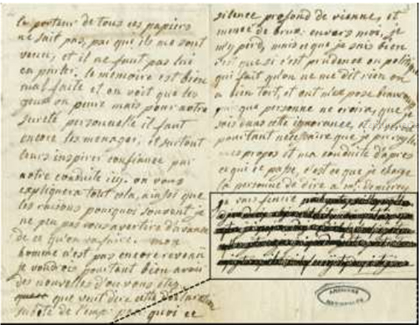 le porteur de tous ces papiers
ne sait pas, par qui ils me sont
venus, et il ne faut pas lui
en parler. le memoire est bien
mal faite et on voit que les
gens on peure mais pour notre
sureté personnelle il faut
encore les menager, et surtout
leurs inspirer confiance par
notre conduite ici. on vous
expliquera tout cela, ainsi que
les raisons pourquoi souvent je
ne peu pas vous avertire d'avance
de ce qu'on va faire. mon
homme n'est pas encore revenu
je voudrois pourtant bien avoir
des nouvelles d'ou vous etes
que veut dire cette declaration
subite de l'emp. pourquoi ce
silence profond de vienne, et
meme de brux. envers moi. je
m'y perd, mais ce que je sais bien
c'est que si c'est prudence ou politique
qui fait qu'on ne me dit rien on
a bien tort, et on m'expose beaucoup
parce que personne ne croira, que je
sois dans cette ignorance et il seroit
pourtant necessaire que je
mes propos et ma conduite d'apres
ce qui ce passe, c'est ce que je charge
la personne de dire a m. de mercy.
je vais fenire
ARCHIVES
NATIONALES